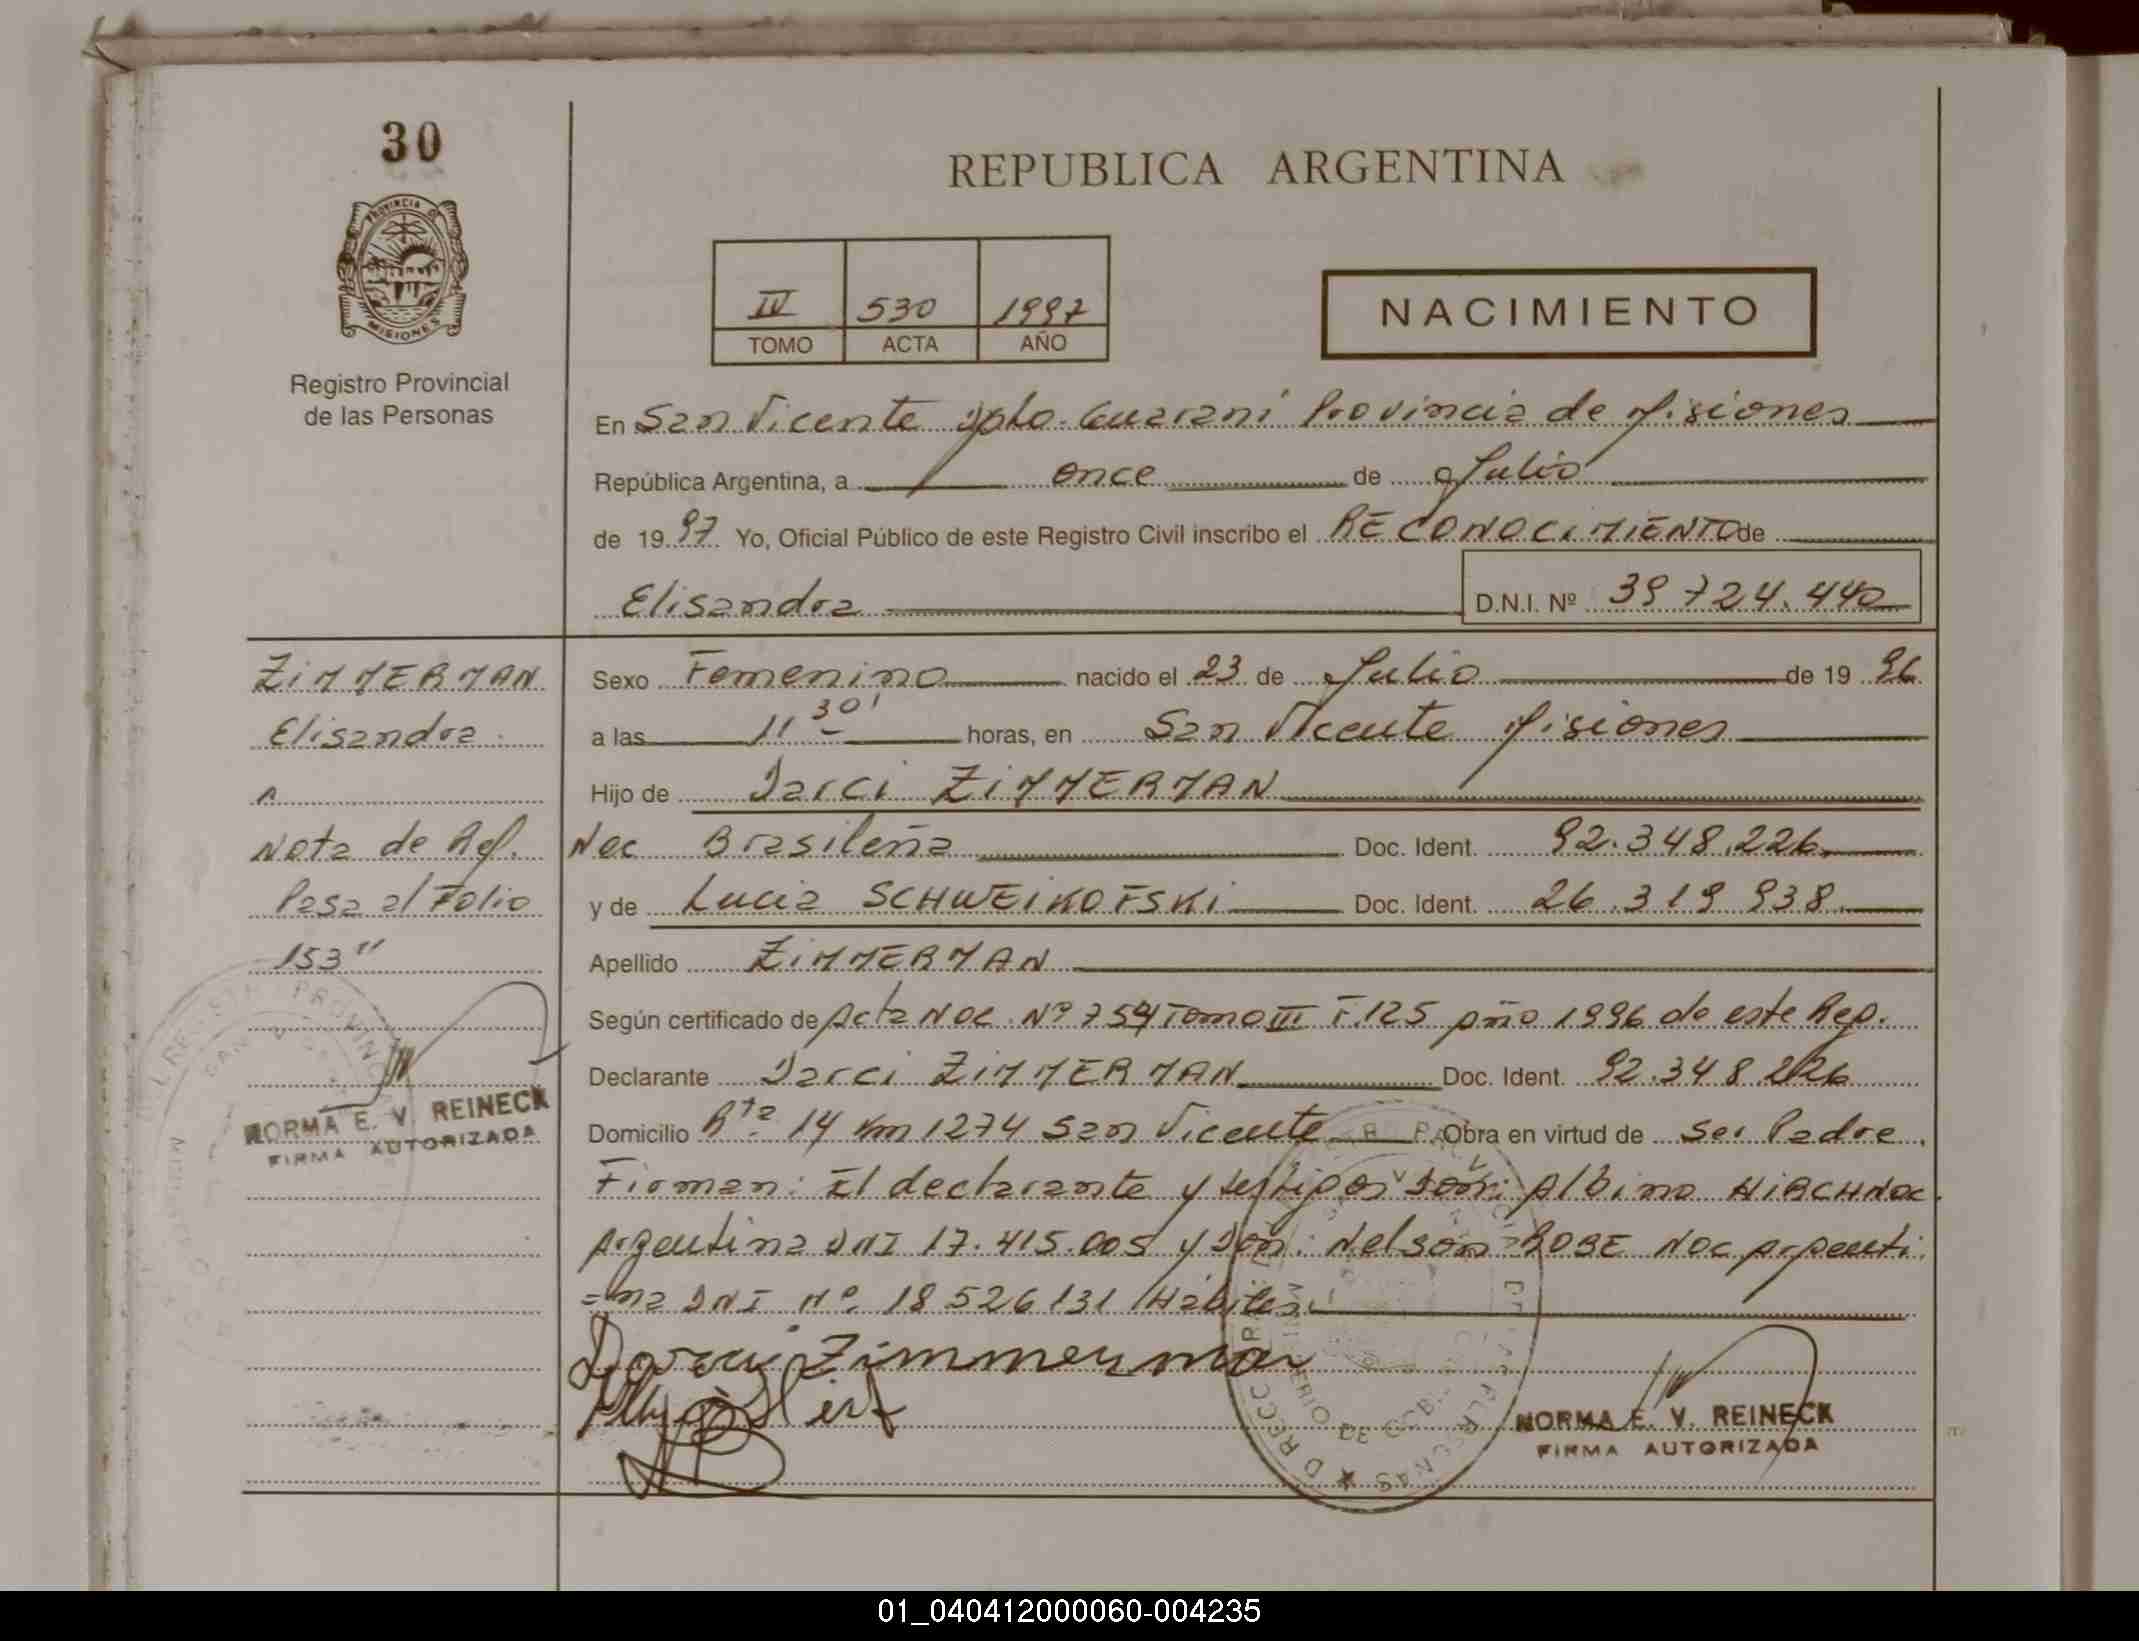 30
REPUBLICA ARGENTINA
PROVINCIA DE
MISIONES
Registro Provincial
de las Personas
IV 530 1997
TOMO ACTA AÑO
NACIMIENTO
En San Vicente Dpto. Guaraní Provincia de Misiones
República Argentina, a once de Julio
de 1997 Yo, Oficial Público de este Registro Civil inscribo el RECONOCIMIENTO de
Elisandra D.N.I. Nº 39724.440
ZIMMERMAN
Elisandra
Nota de Ref.
Pasa al Folio
153"
NORMA E. V. REINECK
FIRMA AUTORIZADA
Sexo Femenino nacido el 23 de Julio de 1996
a las 11 30' horas, en San Vicente Misiones
Hijo de Darci ZIMMERMAN
Nac Brasileña Doc. Ident. 92.348.226
y de Lucia SCHWEIKOFSKI Doc. Ident. 26.319 938
Apellido ZIMMERMAN
Según certificado de Acta Nac. Nº 754 Tomo III F.125 Año 1996 de este Reg.
Declarante Darci ZIMMERMAN Doc. Ident. 92.348.226
Domicilio Rta 14 Km 1274 San Vicente Obra en virtud de ser Padre.
Firman: El declarante y testigos Don: Albino HIRCH Nac.
Argentina DNI 17.415.005 y Don: Nelson ROSE Nac Argenti
=na DNI Nº 18526131 Hábiles.
Darci Zimmerman
NORMA E. V. REINECK
FIRMA AUTORIZADA
01_040412000060-004235